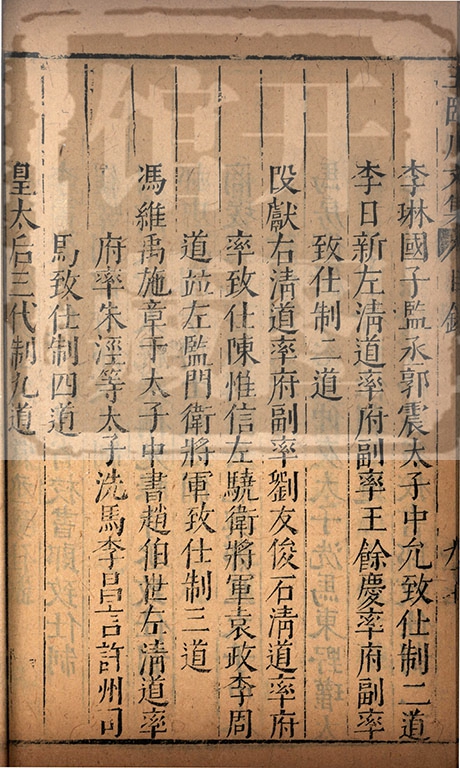 李琳國子監丞郭震太子中允致仕制二道
李日新左清道率府副率王餘慶率府副率
致仕制二道
段獻右清道率府副率劉友俊石清道率府
率致仕陳惟信左驍衛將軍袁政李周
道並左監門衛將軍致仕制三道
馮維禹施章于太子中書趙伯世左清道率
府率朱涇等太子洗馬李昌言許州司
馬致仕制四道
皇太后三代制九道